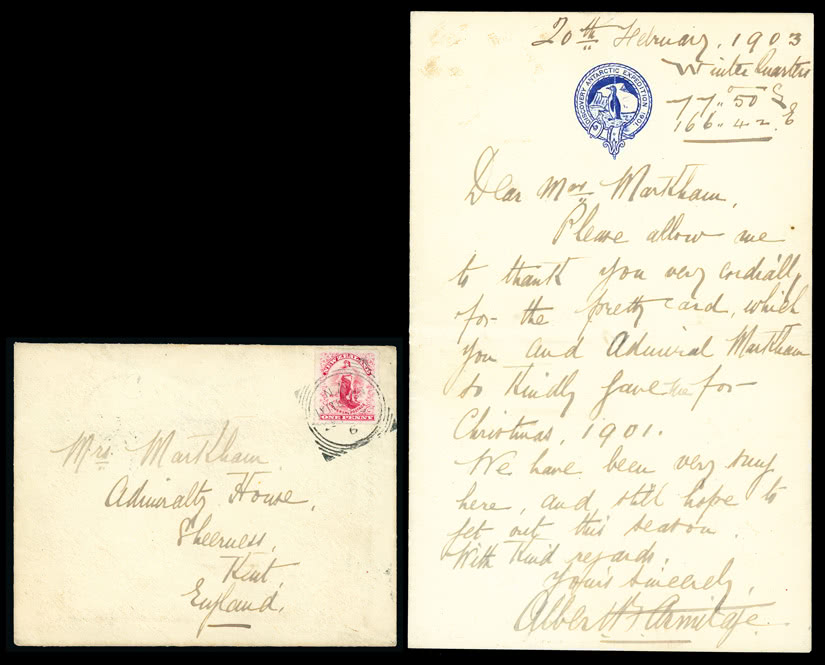 20th February, 1903
Winter Quarters
77° 50 S
166. 42 E
DISCOVERY ANTARCTIC EXPEDITION 1901
Dear Mrs Markham,
Please allow me
to thank you very cordially
for the pretty card, which
you and Admiral Markham
so kindly gave me for
Christmas, 1901.
We have been very snug
here, and still hope to
get out this season.
With kind regards.
Yours sincerely,
Albert Armitage.
NEW ZEALAND
ONE PENNY
6
Mrs Markham
Admiralty House,
Sheerness,
Kent,
England.